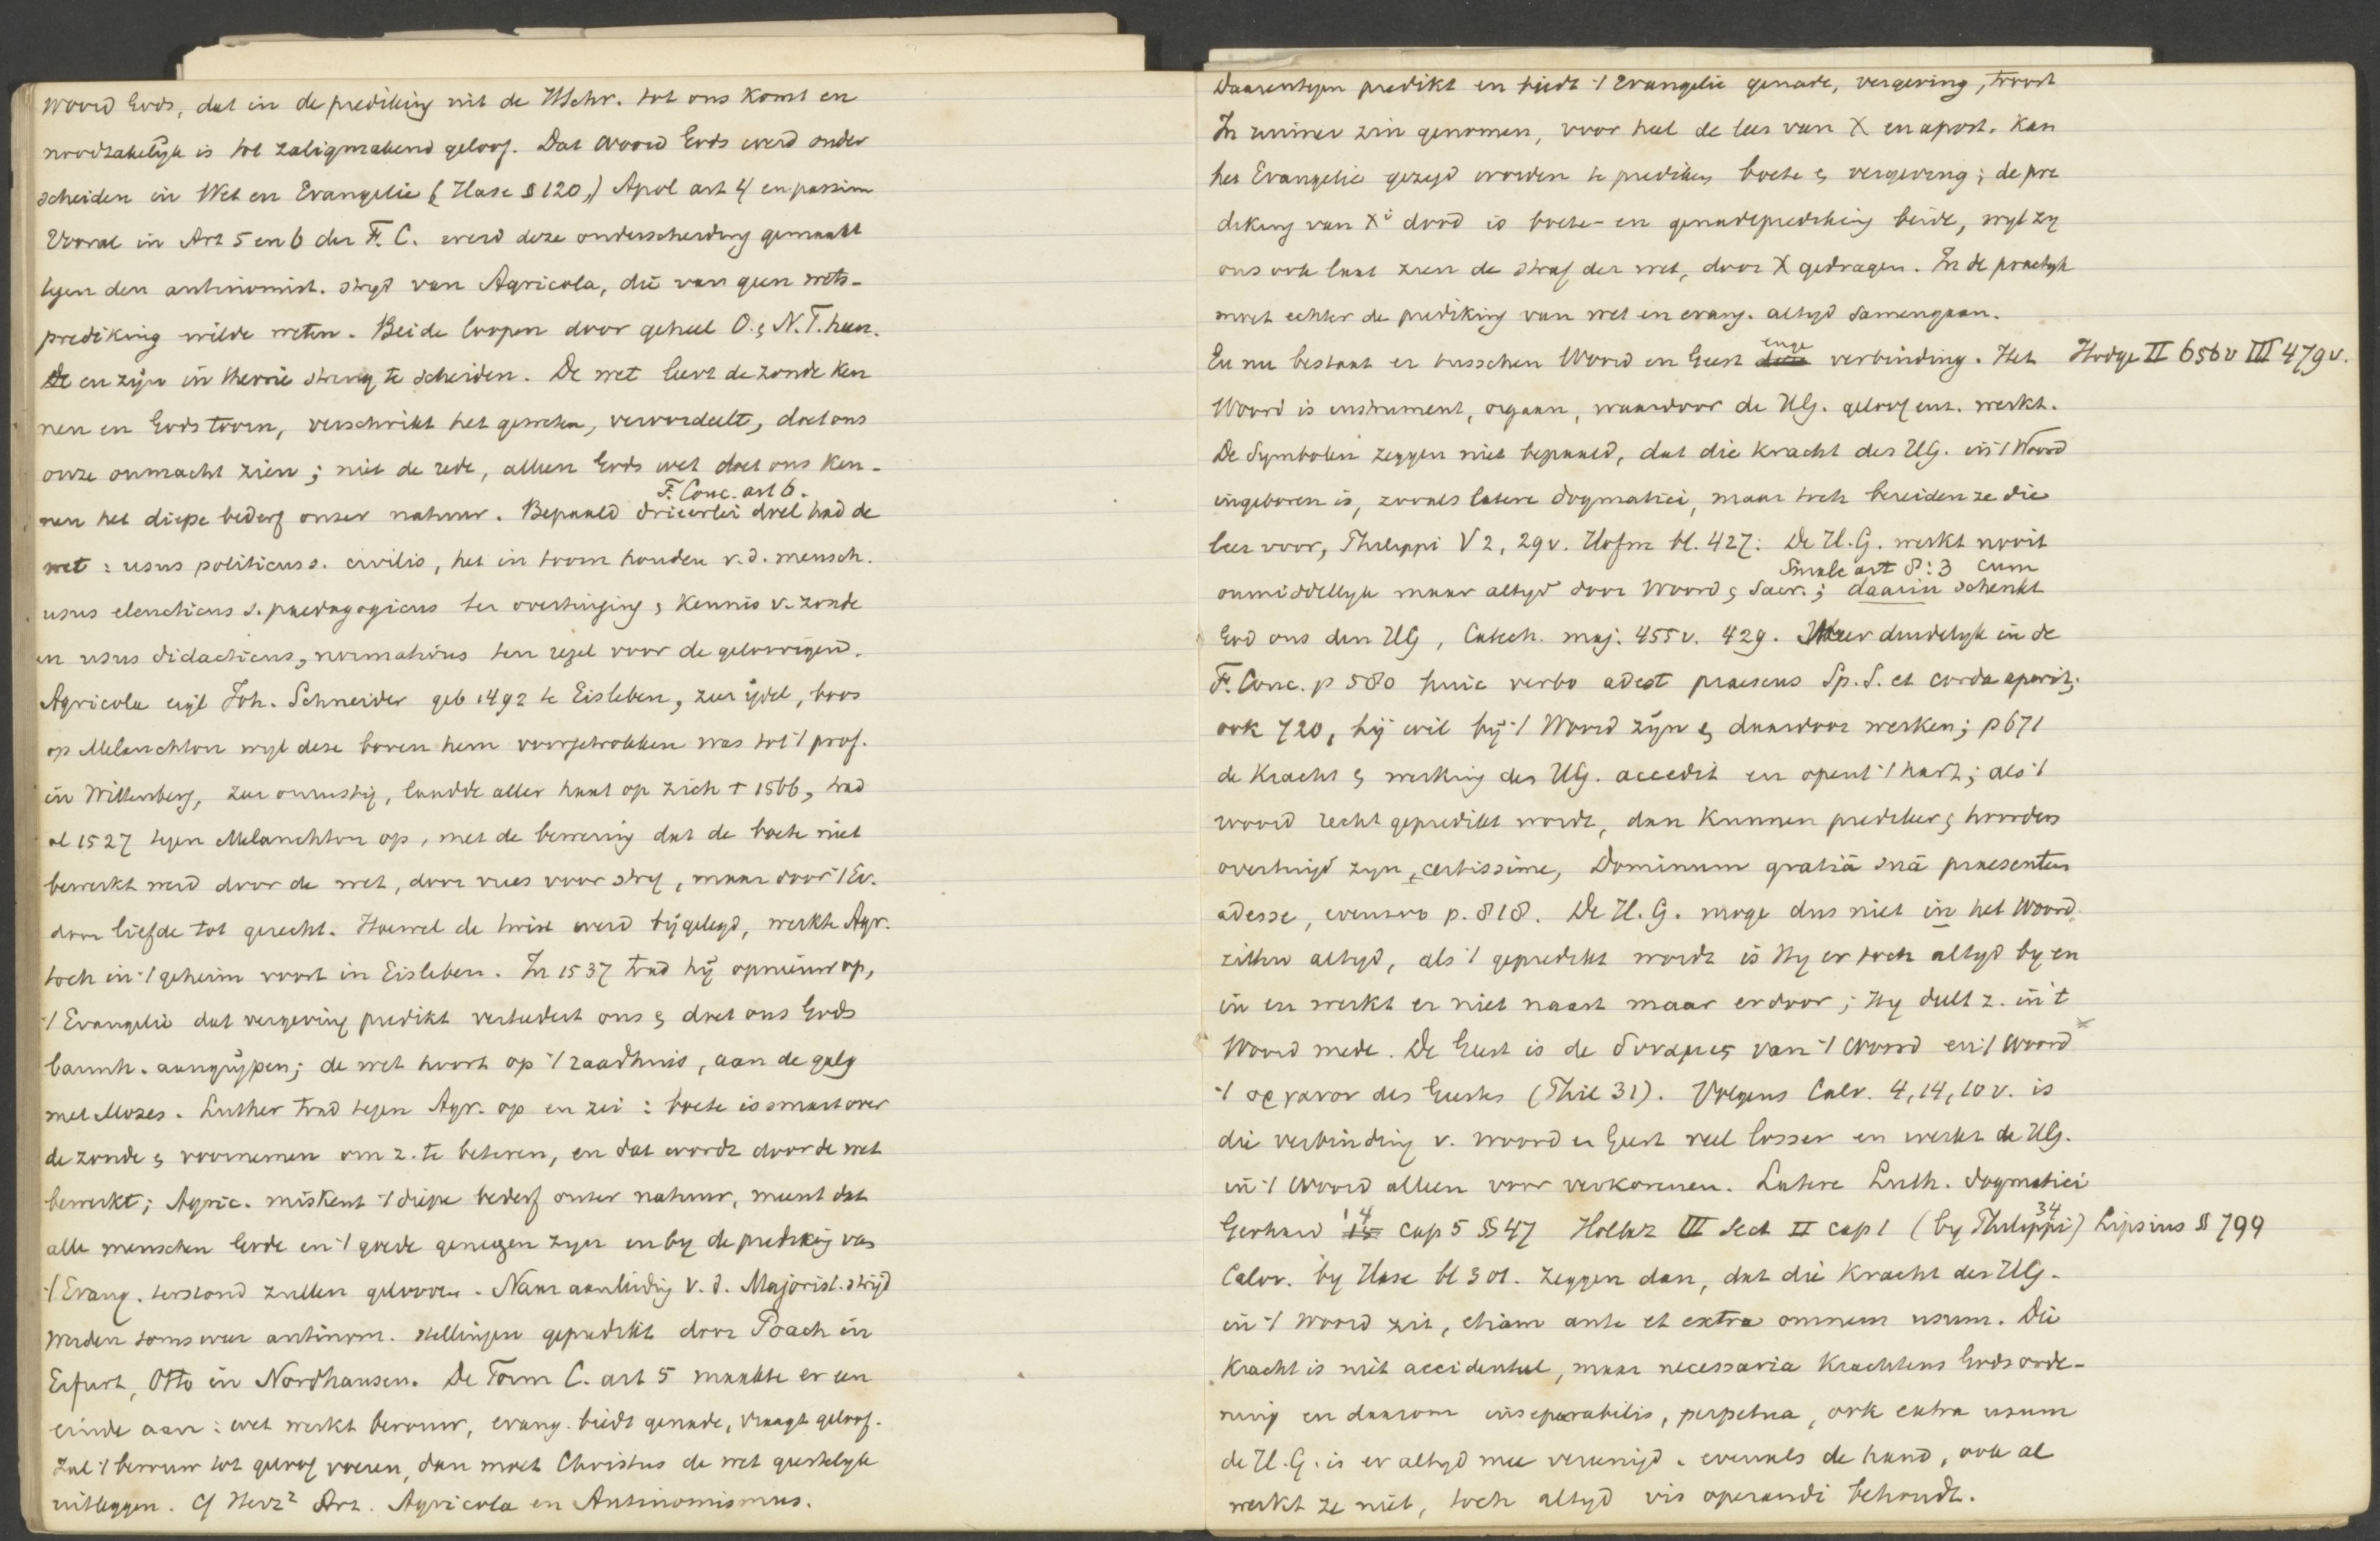 woord Gods, dat in de prediking uit de HSchr. tot ons komt en
noodzakelijk is tot zaligmakend geloof. Dat woord Gods werd onder
scheiden in Wet en Evangelie (Hase § 120,) Apol art 4 en passim
Vooral in Art 5 en 6 der F. C. werd deze onderscheiding gemaakt
tegen den antinomist. strijd van Agricola, die van geen wets-
prediking wilde weten. Beide loopen door geheel O. & N. T. heen.
en zijn in theorie streng te scheiden. De wet leert de zonde ken
nen en Gods toorn, verschrikt het geweten, veroordeelt, doet ons
onze onmacht zien; niet de rede, alleen Gods wet doet ons ken-
F. Conc. art 6.
nen het diepe bederf onser natuur. Bepaald drieërlei doel had de
wet: usus politicus s. civilis, het in toom houden v. d. mensch.
usus elenchticus s. paedagogicus ter overtuiging & kennis v. zonde
en usus didacticus, normativus ten regel voor de geloovigend.
Agricola eigl Joh. Schneider geb 1492 te Eisleben, zeer ijdel, boos
op Melanchton wijl deze boven hem voorgetrokken was tot 't prof.
in Wittenberg, zeer onrustig, laadde aller haat op zich † 1566, trad
al 1527 tegen Melanchton op, met de bewering dat de boete niet
bewerkt werd door de wet, door vrees voor straf, maar door 't Ev.
door liefde tot gerecht. Hoewel de twist werd bijgelegd, werkte Agr.
toch in 't geheim voort in Eisleben. In 1537 trad hij opnieuw op,
't Evangelie dat vergeving predikt verteedert ons & doet ons Gods
barmh. aangrijpen; de wet hoort op 't raadhuis, aan de galg
met Mozes. Luther trad tegen Agr. op en zei: boete is smart over
de zonde & voornemen om z. te beteren, en dat wordt door de wet
bewerkt; Agric. miskent 't diepe bederf onser natuur, meent dat
alle menschen Gode en 't goede genegen zijn en by de prediking van
't Evang. terstond zullen gelooven. Naar aanleiding v. d. Majorist. strijd
werden soms weer antinom. stellingen gepredikt door Poach in
Erfurt, Otto in Nordhausen. De Form C. art 5 maakte er een
einde aan: wet werkt berouw, evang. biedt genade, vraagt geloof.
Zal 't berouw tot geloof voeren, dan moet Christus de wet geestelijk
uitleggen. Cf Herz² Art. Agricola en Antinomismus.
Daarentegen predikt en biedt 't Evangelie genade, vergeving, troost
In ruimer zin genomen, voor heel de leer van X en apost. kan
het Evangelie gezegd worden te prediken boete & vergeving; de pre
diking van Xi dood is boete- en genadeprediking beide, wijl zy
ons ook laat zien de straf der wet, door X gedragen. In de practyk
moet echter de prediking van wet en evang. altyd samengaan.
enge
En nu bestaat er tusschen Woord en Geest verbinding. Het Hodge II 656v III 479v.
Woord is instrument, orgaan, waardoor de HG. geloof enz. werkt.
De Symbolen zeggen niet bepaald, dat die kracht des HG. in 't Woord
ingeboren is, zooals latere dogmatici, maar toch bereiden ze die
leer voor, Philippi V 2, 29v. Hofm bl. 427: De H. G. werkt nooit
Smalc art 8:3 cum
onmiddellyk maar altyd door Woord & Sacr.; daarin schenkt
God ons den HG, Catech. maj. 455v. 429. Meer duidelyk in de
F. Conc. p 580 huic verbo adest praesens Sp. S. et corda aperit;
ook 720, hij wil bij 't Woord zijn & daardoor werken; p 671
de kracht & werking des HG. accedit en opent 't hart; als 't
woord recht gepredikt wordt, dan kunnen prediker & hoorders
overtuigd zyn, certissime, Dominum gratiâ suâ praesentem
adesse, evenzoo p. 818. De H. G. moge dus niet in het Woord
zitten altyd, als 't gepredikt wordt is Hy er toch altyd by en
in en werkt er niet naast maar erdoor; Hy deelt z. in 't
Woord mede. De Geest is de δυναμις van 't woord en 't woord
't οργανον des Geestes (Phil 31). Volgens Calv. 4, 14, 10 v. is
die verbinding v. woord en Geest veel losser en werkt de HG.
in 't woord alleen voor verkorenen. Latere Luth. dogmatici
14 34
Gerhard cap 5 § 47 Hollaz III Sect II cap 1 (by Philippi) Lipsius § 799
Calov. by Hase bl 301. zeggen dan, dat die kracht des HG.
in 't woord zit, etiam ante et extra omnem usum. Die
kracht is niet accidenteel, maar necessaria krachtens Gods orde-
ning en daarom inseparabilis, perpetua, ook extra usum
de H. G. is er altyd mee vereenigd. evenals de hand, ook al
werkt ze niet, toch altyd vis operandi behoudt.